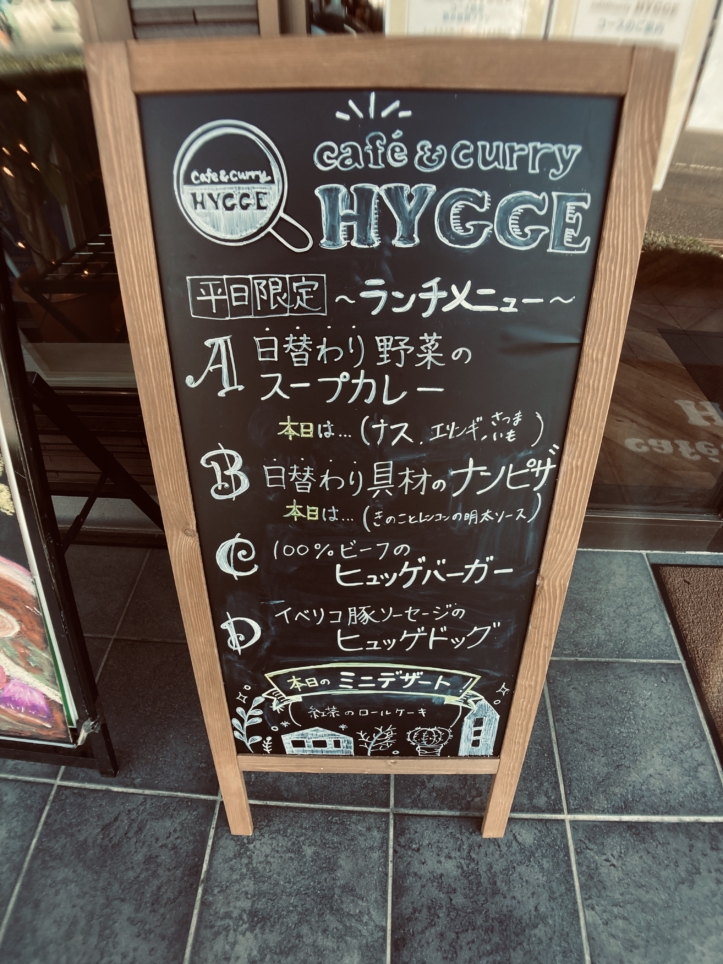 Cafe & Curry
HYGGE
café & curry
HYGGE
平日限定 ～ランチメニュー～
A 日替わり野菜の
スープカレー
本日は…(ナス、エリンギ、さつまいも)
B 日替わり具材のナンピザ
本日は…(きのことレンコンの明太ソース)
C 100%ビーフの
ヒュッゲバーガー
D イベリコ豚ソーセージの
ヒュッゲドッグ
本日のミニデザート!
紅茶のロールケーキ